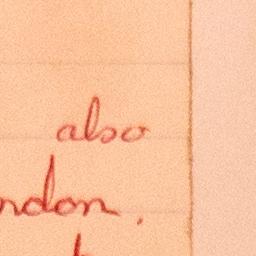 also
ndon.